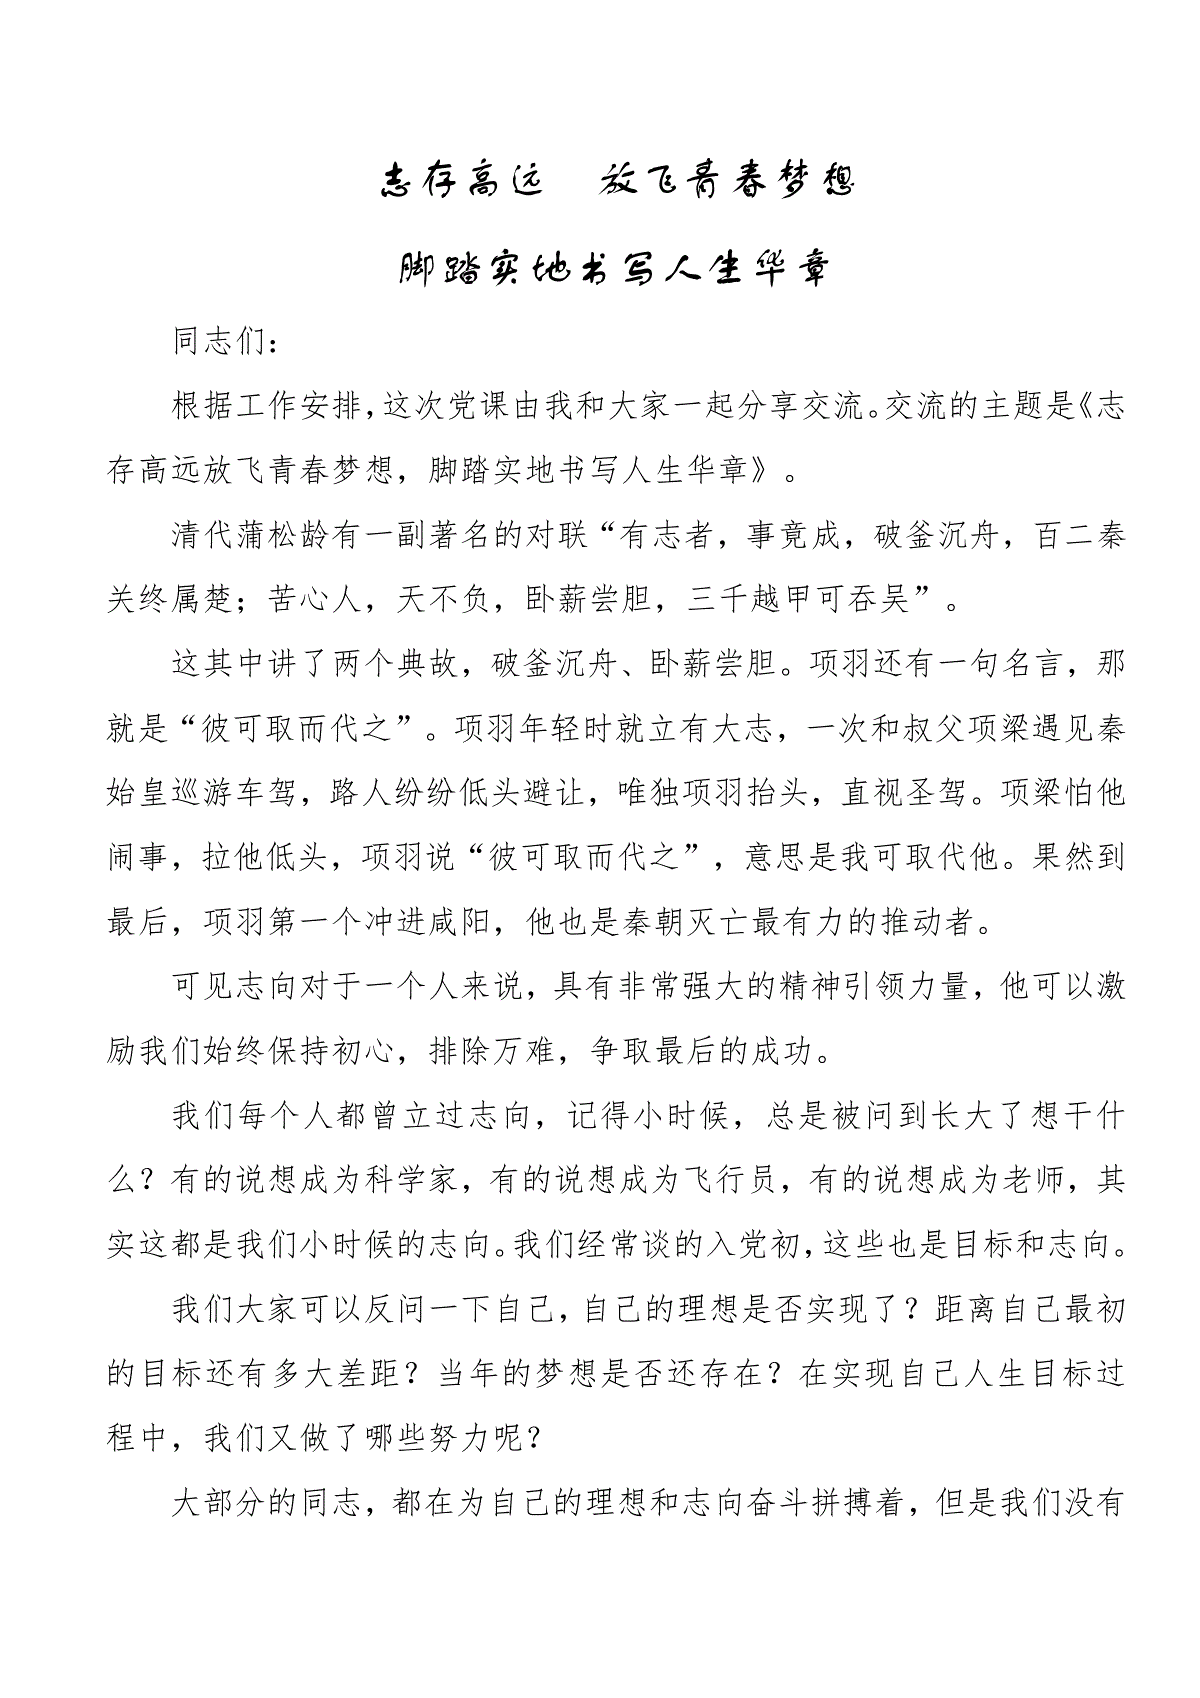 志存高远　放飞青春梦想
脚踏实地书写人生华章
同志们：
根据工作安排，这次党课由我和大家一起分享交流。交流的主题是《志
存高远放飞青春梦想，脚踏实地书写人生华章》。
清代蒲松龄有一副著名的对联“有志者，事竟成，破釜沉舟，百二秦
关终属楚；苦心人，天不负，卧薪尝胆，三千越甲可吞吴”。
这其中讲了两个典故，破釜沉舟、卧薪尝胆。项羽还有一句名言，那
就是“彼可取而代之”。项羽年轻时就立有大志，一次和叔父项梁遇见秦
始皇巡游车驾，路人纷纷低头避让，唯独项羽抬头，直视圣驾。项梁怕他
闹事，拉他低头，项羽说“彼可取而代之”，意思是我可取代他。果然到
最后，项羽第一个冲进咸阳，他也是秦朝灭亡最有力的推动者。
可见志向对于一个人来说，具有非常强大的精神引领力量，他可以激
励我们始终保持初心，排除万难，争取最后的成功。
我们每个人都曾立过志向，记得小时候，总是被问到长大了想干什
么？有的说想成为科学家，有的说想成为飞行员，有的说想成为老师，其
实这都是我们小时候的志向。我们经常谈的入党初，这些也是目标和志向。
我们大家可以反问一下自己，自己的理想是否实现了？距离自己最初
的目标还有多大差距？当年的梦想是否还存在？在实现自己人生目标过
程中，我们又做了哪些努力呢？
大部分的同志，都在为自己的理想和志向奋斗拼搏着，但是我们没有